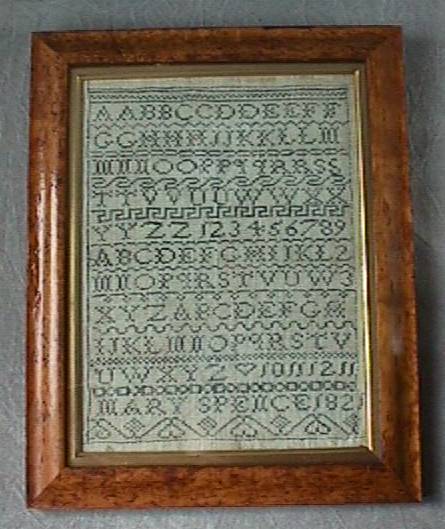 AABBCCDDEEFF
GGHHHIJKKLLM
MNNOOPPQQRRSS
TTVVUUWWXX
YYZZ 123456789
ABCDEFGHIJKL2
MNOPQRSTVUW3
XYZABCDEFGH
IJKLMNOPQRSTV
UWXYZ♡10111211
MARY SPENCE182